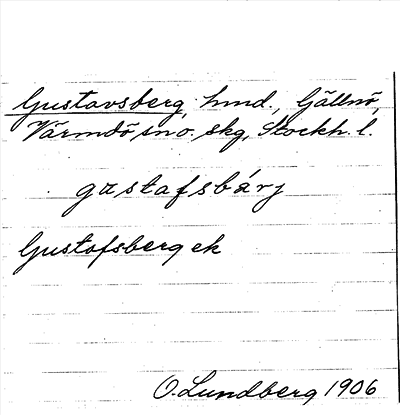 Gustavsberg, hmd., Gällnö,
Värmdö sn o. skg, Stockh. l.
gustafsbärj
Gustafsberg ek
O. Lundberg 1906